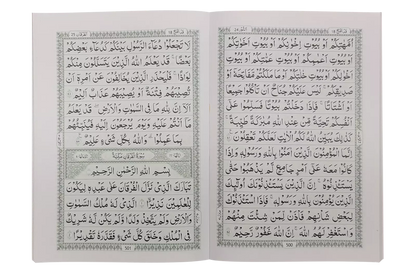 اُمَّهٰتِكُمْ اَوْ بُيُوْتِ اِخْوَانِكُمْ اَوْ بُيُوْتِ اَخَوٰتِكُمْ
اَوْ بُيُوْتِ اَعْمَامِكُمْ اَوْ بُيُوْتِ عَمّٰتِكُمْ اَوْ بُيُوْتِ
اَخْوَالِكُمْ اَوْ بُيُوْتِ خٰلٰتِكُمْ اَوْ مَا مَلَكْتُمْ مَّفَاتِحَهٗٓ اَوْ
صَدِيْقِكُمْ ؕ لَيْسَ عَلَيْكُمْ جُنَاحٌ اَنْ تَاْكُلُوْا جَمِيْعًا
اَوْ اَشْتَاتًا ؕ فَاِذَا دَخَلْتُمْ بُيُوْتًا فَسَلِّمُوْا عَلٰٓى
اَنْفُسِكُمْ تَحِيَّةً مِّنْ عِنْدِ اللّٰهِ مُبٰرَكَةً طَيِّبَةً ؕ
كَذٰلِكَ يُبَيِّنُ اللّٰهُ لَكُمُ الْاٰيٰتِ لَعَلَّكُمْ تَعْقِلُوْنَ
اِنَّمَا الْمُؤْمِنُوْنَ الَّذِيْنَ اٰمَنُوْا بِاللّٰهِ وَرَسُوْلِهٖ وَاِذَا
كَانُوْا مَعَهٗ عَلٰٓى اَمْرٍ جَامِعٍ لَّمْ يَذْهَبُوْا حَتّٰى
يَسْتَاْذِنُوْهُ ؕ اِنَّ الَّذِيْنَ يَسْتَاْذِنُوْنَكَ اُولٰٓئِكَ
الَّذِيْنَ يُؤْمِنُوْنَ بِاللّٰهِ وَرَسُوْلِهٖ ۚ فَاِذَا اسْتَاْذَنُوْكَ
لِبَعْضِ شَاْنِهِمْ فَاْذَنْ لِّمَنْ شِئْتَ مِنْهُمْ
وَاسْتَغْفِرْ لَهُمُ اللّٰهَ ؕ اِنَّ اللّٰهَ غَفُوْرٌ رَّحِيْمٌ
لَا تَجْعَلُوْا دُعَآءَ الرَّسُوْلِ بَيْنَكُمْ كَدُعَآءِ بَعْضِكُمْ
بَعْضًا ؕ قَدْ يَعْلَمُ اللّٰهُ الَّذِيْنَ يَتَسَلَّلُوْنَ مِنْكُمْ
لِوَاذًا ۚ فَلْيَحْذَرِ الَّذِيْنَ يُخَالِفُوْنَ عَنْ اَمْرِهٖٓ اَنْ
تُصِيْبَهُمْ فِتْنَةٌ اَوْ يُصِيْبَهُمْ عَذَابٌ اَلِيْمٌ
اَلَآ اِنَّ لِلّٰهِ مَا فِي السَّمٰوٰتِ وَالْاَرْضِ ؕ قَدْ يَعْلَمُ
مَآ اَنْتُمْ عَلَيْهِ ؕ وَيَوْمَ يُرْجَعُوْنَ اِلَيْهِ فَيُنَبِّئُهُمْ
بِمَا عَمِلُوْا ؕ وَاللّٰهُ بِكُلِّ شَيْءٍ عَلِيْمٌ
سُوْرَةُ الْفُرْقَانِ مَكِّيَّةٌ
بِسْمِ اللّٰهِ الرَّحْمٰنِ الرَّحِيْمِ
تَبٰرَكَ الَّذِيْ نَزَّلَ الْفُرْقَانَ عَلٰى عَبْدِهٖ لِيَكُوْنَ
لِلْعٰلَمِيْنَ نَذِيْرًا الَّذِيْ لَهٗ مُلْكُ السَّمٰوٰتِ
وَالْاَرْضِ وَلَمْ يَتَّخِذْ وَلَدًا وَّلَمْ يَكُنْ لَّهٗ شَرِيْكٌ
فِي الْمُلْكِ وَخَلَقَ كُلَّ شَيْءٍ فَقَدَّرَهٗ تَقْدِيْرًا